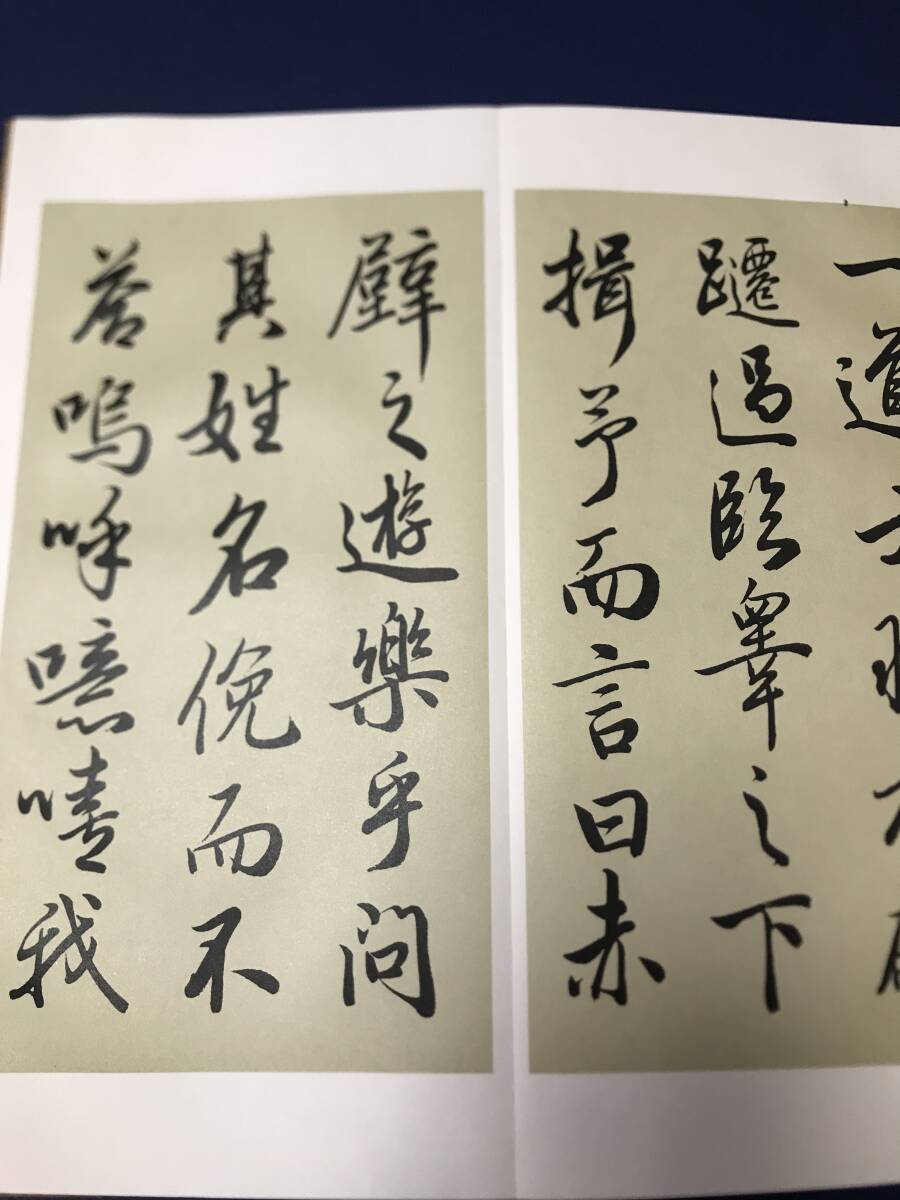 一道士羽衣
躚過臨皋之下
揖予而言曰赤
壁之遊樂乎問
其姓名俛而不
答嗚呼噫嘻我